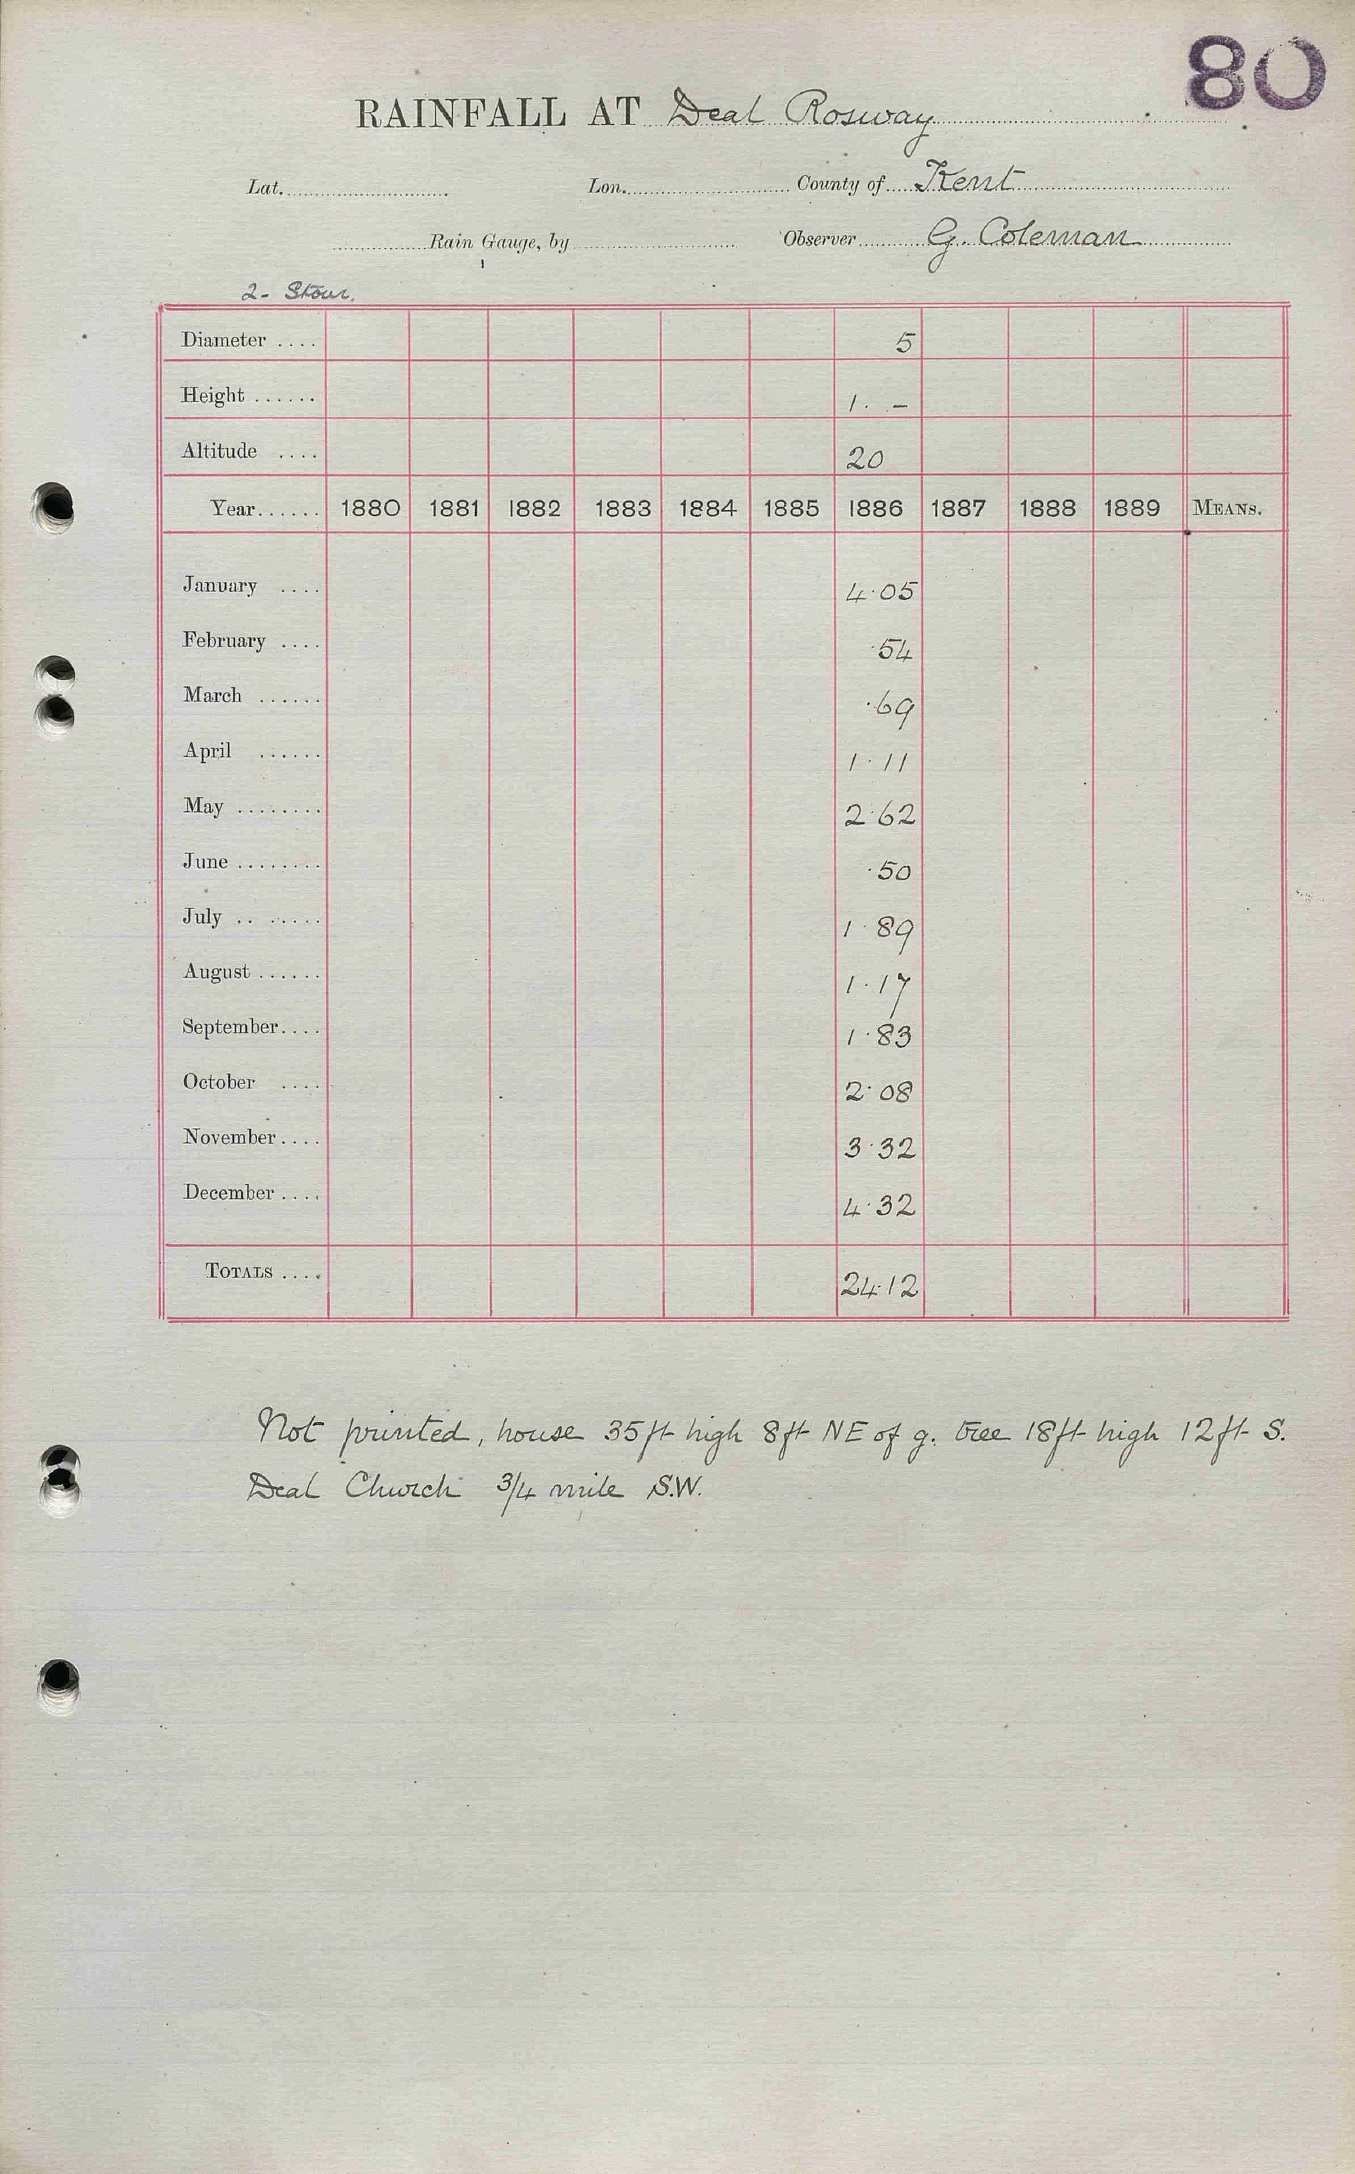 80
RAINFALL AT Deal Rosway
Lat. Lon. County of Kent
Rain Gauge, by Observer G. Coleman
2- Stour.
Diameter .... 5
Height ...... 1. -
Altitude .... 20
Year...... 1880 1881 1882 1883 1884 1885 1886 1887 1888 1889 MEANS.
January .... 4.05
February .... .54
March ...... .69
April ...... 1.11
May ........ 2.62
June ........ .50
July .. ...... 1.89
August ...... 1.17
September.... 1.83
October .... 2.08
November.... 3.32
December .... 4.32
TOTALS .... 24.12
Not printed, house 35ft high 8ft NE of g. tree 18ft high 12ft S.
Deal Church 3/4 mile S.W.